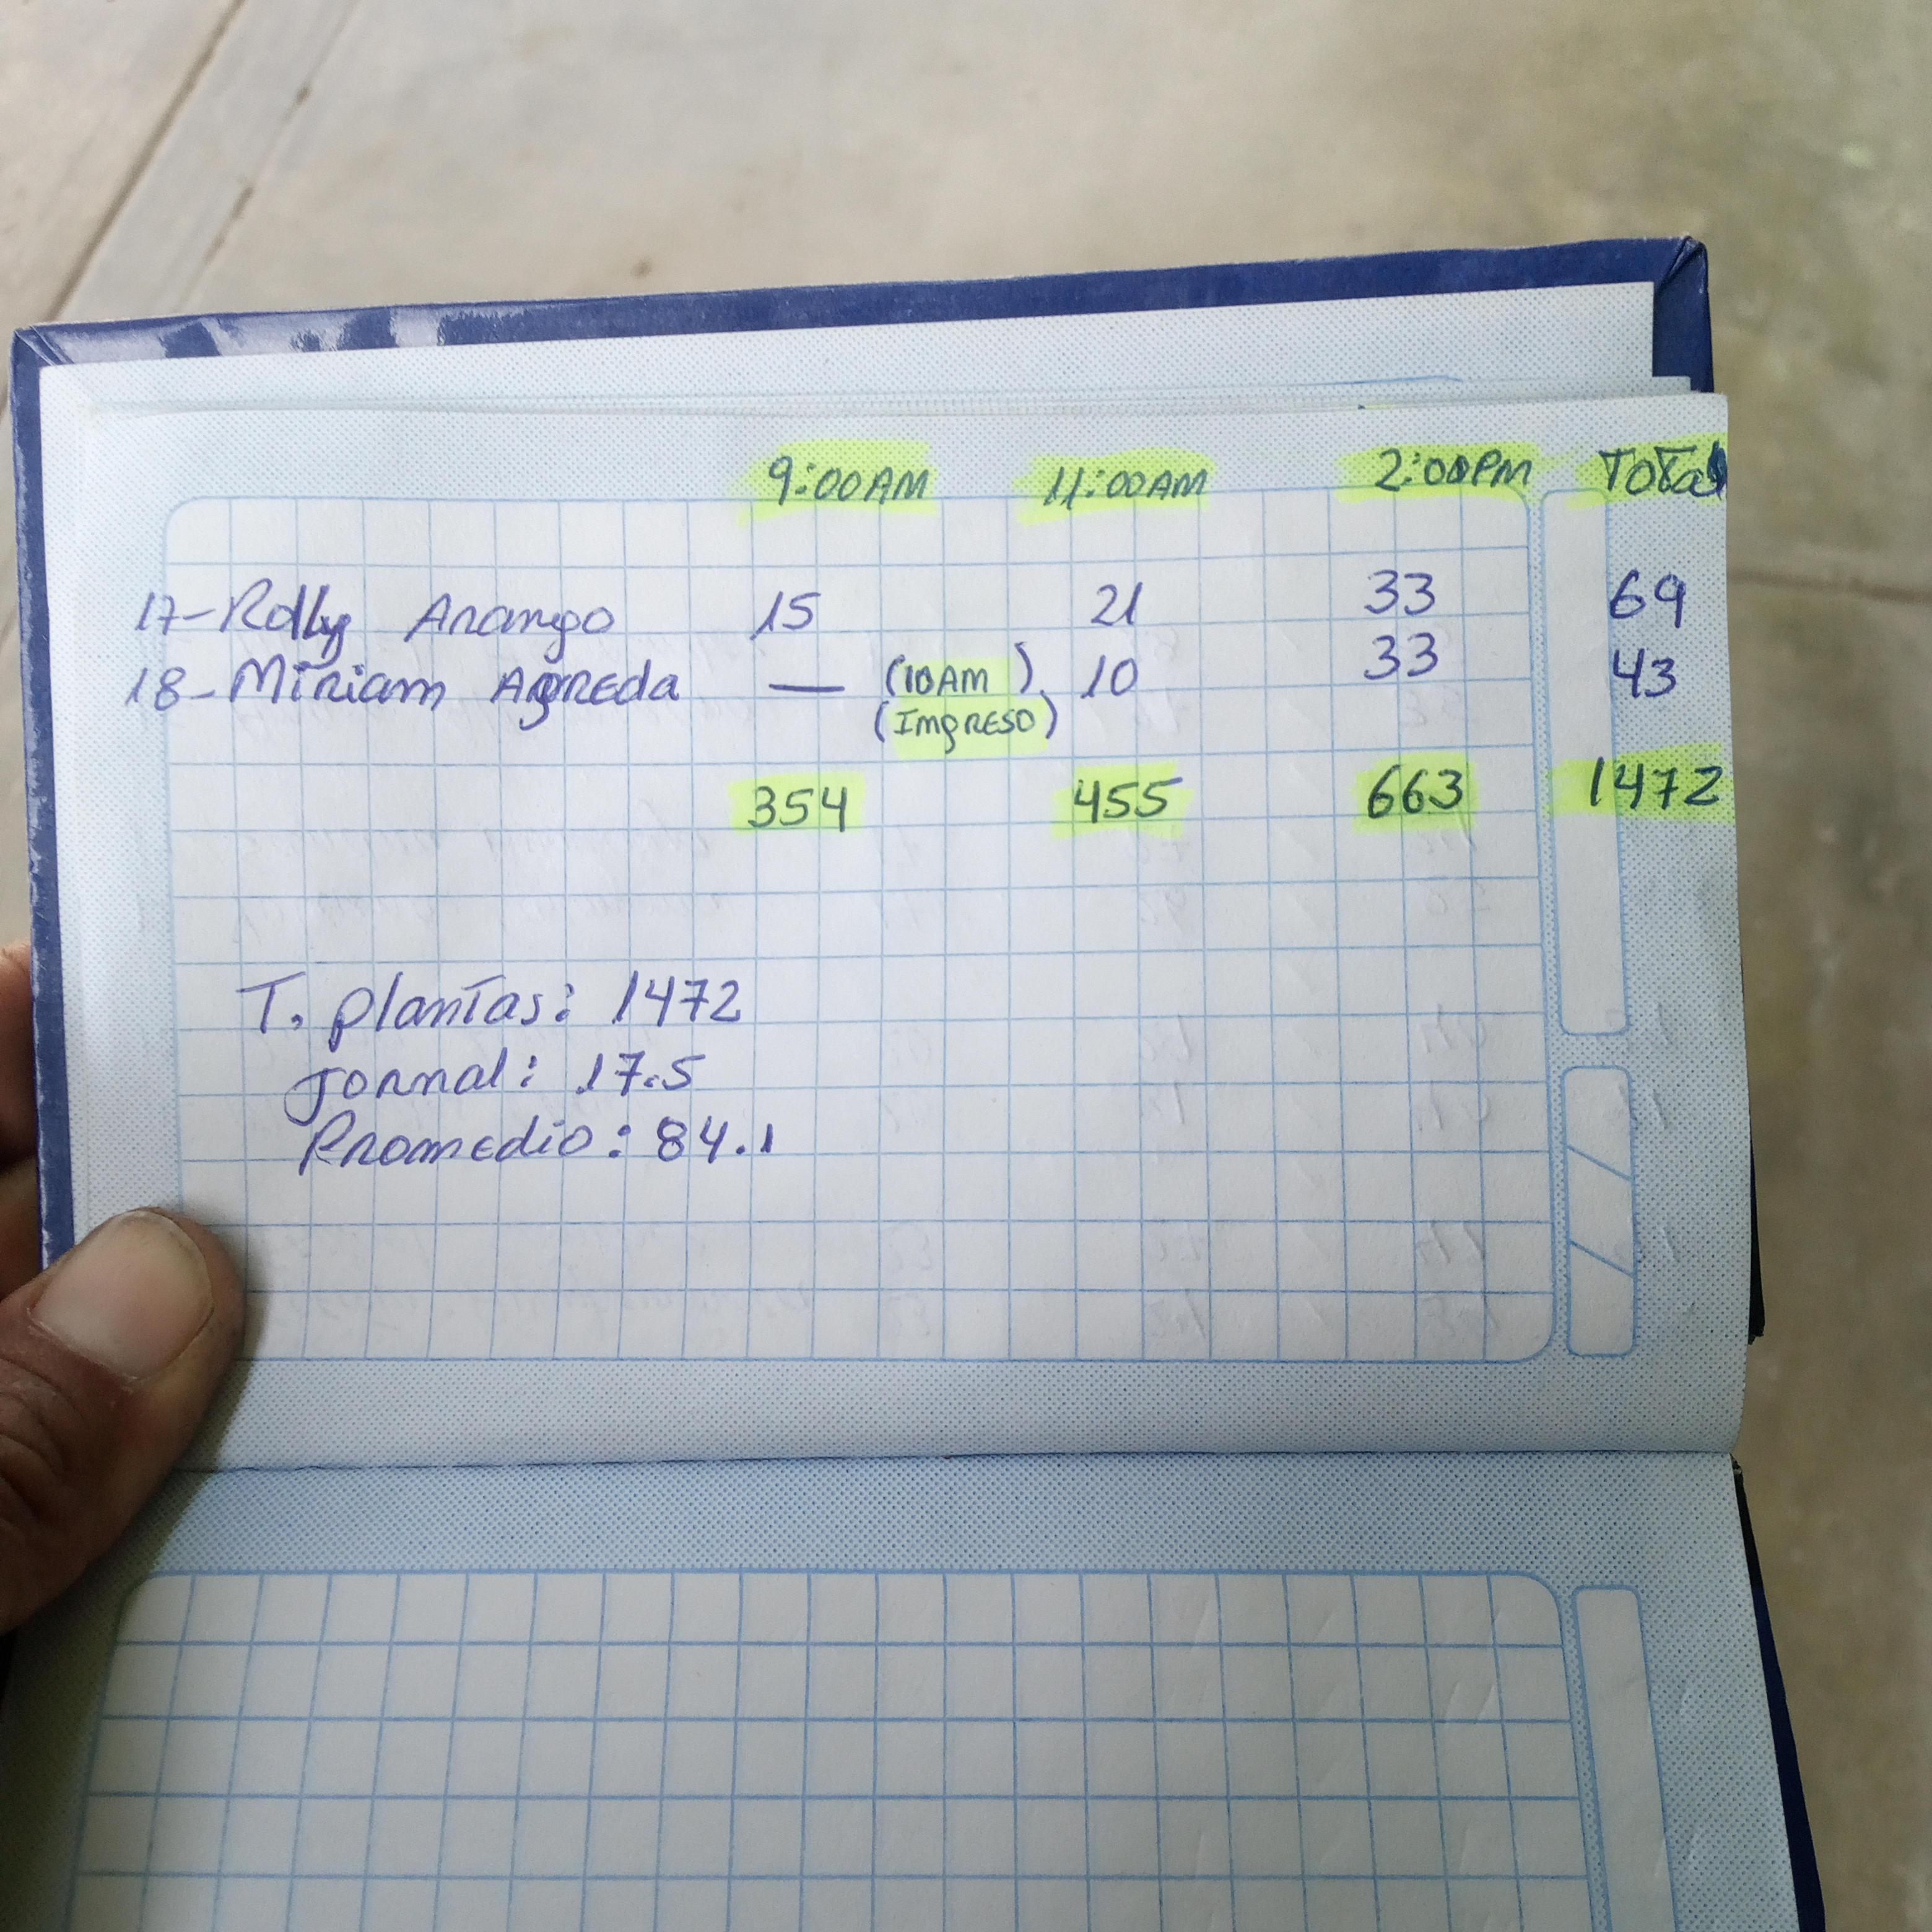 9:00AM 11:00AM 2:00PM Total
17-Rolly Arango 15 21 33 69
18-Miriam Agreda — (10AM) 10 33 43
(Ingreso)
354 455 663 1472
T. plantas: 1472
Jornal: 17.5
Promedio: 84.1